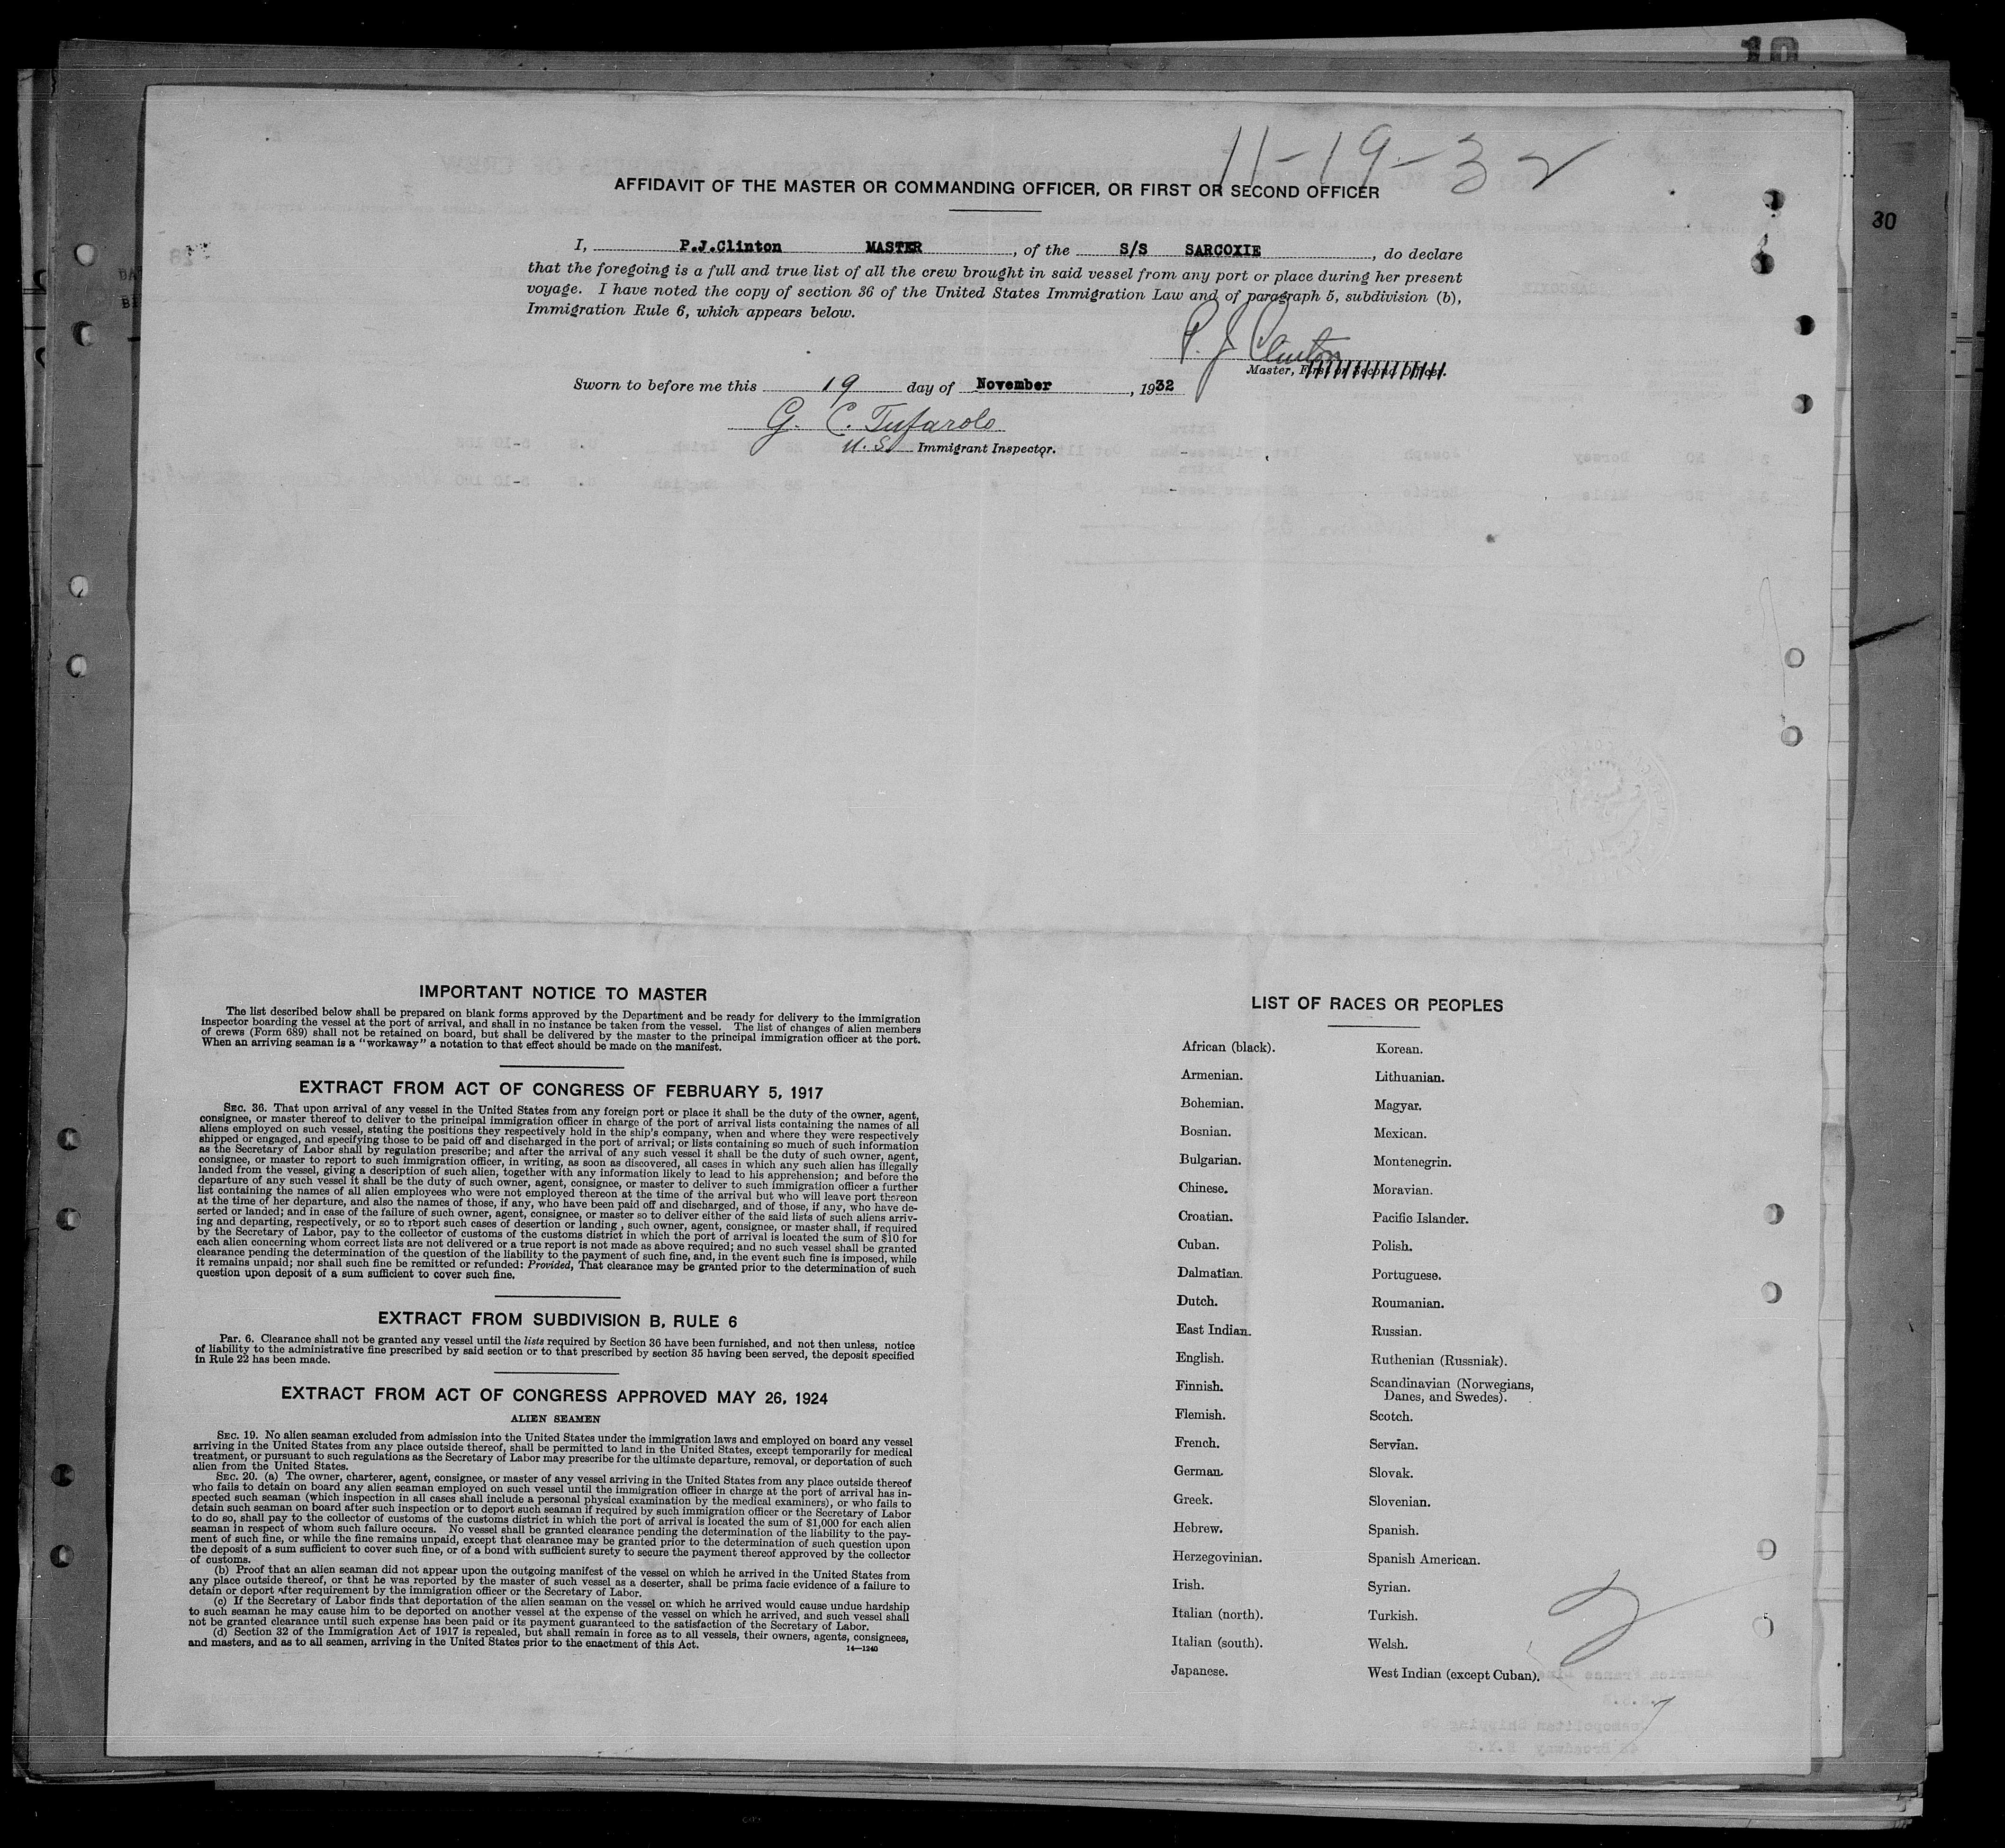 10
30
11-19-32
AFFIDAVIT OF THE MASTER OR COMMANDING OFFICER, OR FIRST OR SECOND OFFICER
I, P.J.Clinton MASTER, of the S/S SARCOXIE, do declare
that the foregoing is a full and true list of all the crew brought in said vessel from any port or place during her present
voyage. I have noted the copy of section 36 of the United States Immigration Law and of paragraph 5, subdivision (b),
Immigration Rule 6, which appears below.
P. J. Clinton
Master, First or Second Officer.
Sworn to before me this 19 day of November, 1932
G. C. Tufarolo
U.S. Immigrant Inspector.
IMPORTANT NOTICE TO MASTER
The list described below shall be prepared on blank forms approved by the Department and be ready for delivery to the immigration
inspector boarding the vessel at the port of arrival, and shall in no instance be taken from the vessel. The list of changes of alien members
of crews (Form 689) shall not be retained on board, but shall be delivered by the master to the principal immigration officer at the port.
When an arriving seaman is a "workaway" a notation to that effect should be made on the manifest.
EXTRACT FROM ACT OF CONGRESS OF FEBRUARY 5, 1917
SEC. 36. That upon arrival of any vessel in the United States from any foreign port or place it shall be the duty of the owner, agent,
consignee, or master thereof to deliver to the principal immigration officer in charge of the port of arrival lists containing the names of all
aliens employed on such vessel, stating the positions they respectively hold in the ship's company, when and where they were respectively
shipped or engaged, and specifying those to be paid off and discharged in the port of arrival; or lists containing so much of such information
as the Secretary of Labor shall by regulation prescribe; and after the arrival of any such vessel it shall be the duty of such owner, agent,
consignee, or master to report to such immigration officer, in writing, as soon as discovered, all cases in which any such alien has illegally
landed from the vessel, giving a description of such alien, together with any information likely to lead to his apprehension; and before the
departure of any such vessel it shall be the duty of such owner, agent, consignee, or master to deliver to such immigration officer a further
list containing the names of all alien employees who were not employed thereon at the time of the arrival but who will leave port thereon
at the time of her departure, and also the names of those, if any, who have been paid off and discharged, and of those, if any, who have de-
serted or landed; and in case of the failure of such owner, agent, consignee, or master so to deliver either of the said lists of such aliens arriv-
ing and departing, respectively, or so to report such cases of desertion or landing, such owner, agent, consignee, or master shall, if required
by the Secretary of Labor, pay to the collector of customs of the customs district in which the port of arrival is located the sum of $10 for
each alien concerning whom correct lists are not delivered or a true report is not made as above required; and no such vessel shall be granted
clearance pending the determination of the question of the liability to the payment of such fine, and, in the event such fine is imposed, while
it remains unpaid; nor shall such fine be remitted or refunded: Provided, That clearance may be granted prior to the determination of such
question upon deposit of a sum sufficient to cover such fine.
EXTRACT FROM SUBDIVISION B, RULE 6
Par. 6. Clearance shall not be granted any vessel until the lists required by Section 36 have been furnished, and not then unless, notice
of liability to the administrative fine prescribed by said section or to that prescribed by section 35 having been served, the deposit specified
in Rule 22 has been made.
EXTRACT FROM ACT OF CONGRESS APPROVED MAY 26, 1924
ALIEN SEAMEN
SEC. 19. No alien seaman excluded from admission into the United States under the immigration laws and employed on board any vessel
arriving in the United States from any place outside thereof, shall be permitted to land in the United States, except temporarily for medical
treatment, or pursuant to such regulations as the Secretary of Labor may prescribe for the ultimate departure, removal, or deportation of such
alien from the United States.
SEC. 20. (a) The owner, charterer, agent, consignee, or master of any vessel arriving in the United States from any place outside thereof
who fails to detain on board any alien seaman employed on such vessel until the immigration officer in charge at the port of arrival has in-
spected such seaman (which inspection in all cases shall include a personal physical examination by the medical examiners), or who fails to
detain such seaman on board after such inspection or to deport such seaman if required by such immigration officer or the Secretary of Labor
to do so, shall pay to the collector of customs of the customs district in which the port of arrival is located the sum of $1,000 for each alien
seaman in respect of whom such failure occurs. No vessel shall be granted clearance pending the determination of the liability to the pay-
ment of such fine, or while the fine remains unpaid, except that clearance may be granted prior to the determination of such question upon
the deposit of a sum sufficient to cover such fine, or of a bond with sufficient surety to secure the payment thereof approved by the collector
of customs.
(b) Proof that an alien seaman did not appear upon the outgoing manifest of the vessel on which he arrived in the United States from
any place outside thereof, or that he was reported by the master of such vessel as a deserter, shall be prima facie evidence of a failure to
detain or deport after requirement by the immigration officer or the Secretary of Labor.
(c) If the Secretary of Labor finds that deportation of the alien seaman on the vessel on which he arrived would cause undue hardship
to such seaman he may cause him to be deported on another vessel at the expense of the vessel on which he arrived, and such vessel shall
not be granted clearance until such expense has been paid or its payment guaranteed to the satisfaction of the Secretary of Labor.
(d) Section 32 of the Immigration Act of 1917 is repealed, but shall remain in force as to all vessels, their owners, agents, consignees,
and masters, and as to all seamen, arriving in the United States prior to the enactment of this Act.
14—1240
LIST OF RACES OR PEOPLES
African (black).
Armenian.
Bohemian.
Bosnian.
Bulgarian.
Chinese.
Croatian.
Cuban.
Dalmatian.
Dutch.
East Indian.
English.
Finnish.
Flemish.
French.
German.
Greek.
Hebrew.
Herzegovinian.
Irish.
Italian (north).
Italian (south).
Japanese.
Korean.
Lithuanian.
Magyar.
Mexican.
Montenegrin.
Moravian.
Pacific Islander.
Polish.
Portuguese.
Roumanian.
Russian.
Ruthenian (Russniak).
Scandinavian (Norwegians,
Danes, and Swedes).
Scotch.
Servian.
Slovak.
Slovenian.
Spanish.
Spanish American.
Syrian.
Turkish.
Welsh.
West Indian (except Cuban).
2